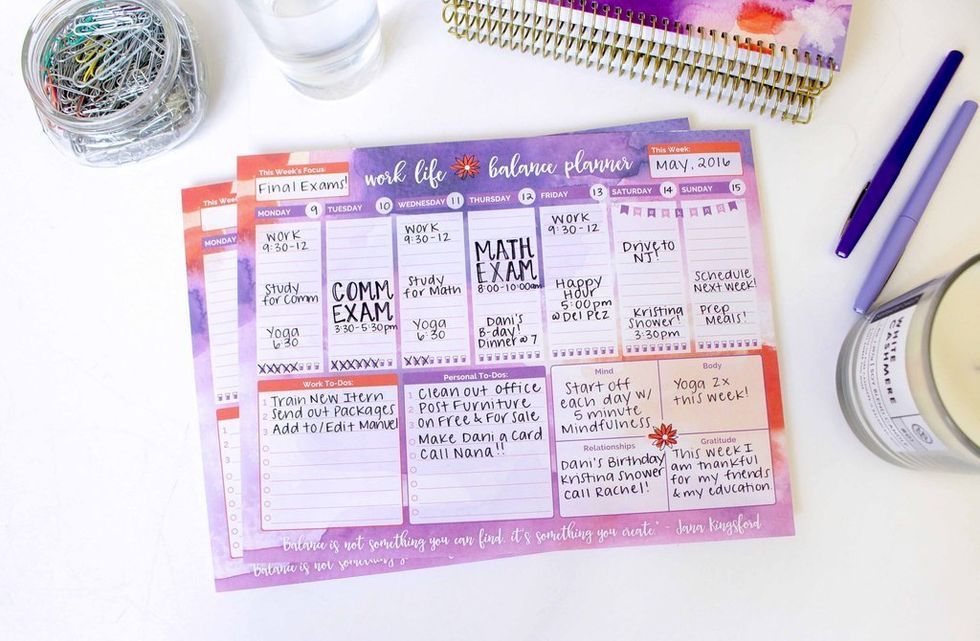 This Week's Focus:
Final Exams!
work life balance planner
This Week:
May, 2016
MONDAY 9
TUESDAY 10
WEDNESDAY 11
THURSDAY 12
FRIDAY 13
SATURDAY 14
SUNDAY 15
WORK
9:30-12
Study
for Comm
Yoga
6:30
COMM
EXAM
3:30-5:30pm
WORK
9:30-12
Study
for Math
Yoga
6:30
MATH
EXAM
8:00-10:00am
Dani's
B-day!
Dinner @ 7
WORK
9:30-12
Happy
Hour
5:00pm
@ Del Pez
WEEKEND
Drive to
NJ!
Kristing
Shower!
3:30pm
Schedule
Next week!
Prep
Meals!
Work To-Dos:
1 Train New Itern
2 Send out Packages
3 Add to/Edit Manuel
Personal To-Dos:
1 Clean out office
2 Post Furniture
3 on Free & For sale
Make Dani a Card
Call Nana!!
Mind
Start off
each day w/
5 minute
Mindfulness
Body
Yoga 2x
this week!
Relationships
Dani's Birthday
Kristing Shower
Call Rachel!
Gratitude
This week I
am thankful
for my friends
& my education.
"Balance is not something you can find, it's something you create." - Jana Kingsford
This Week
MONDAY
1
2
3
"Balance is not something
WHITE
CASHMERE